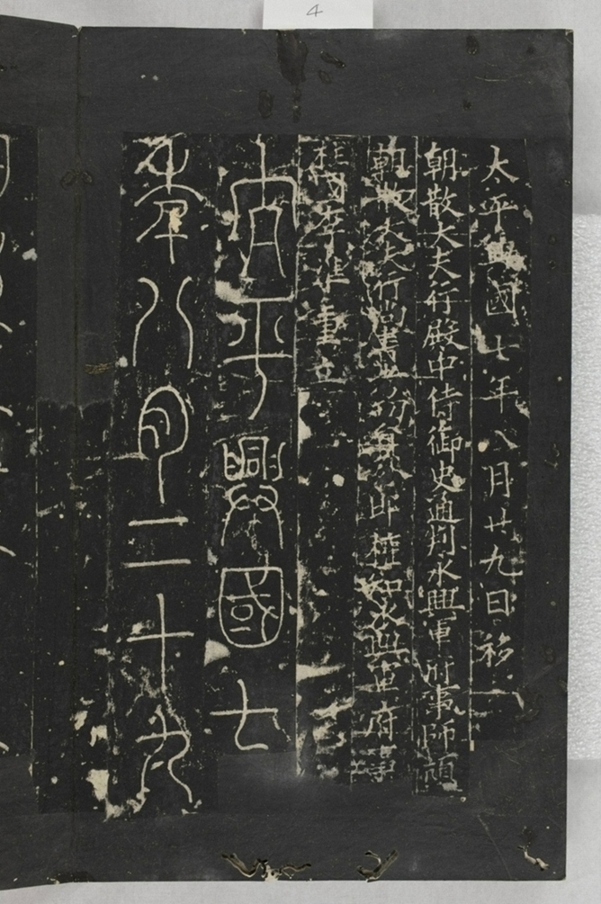 4
太平興國七年八月廿九日移
朝散大夫行殿中侍御史通判永興軍府事師頏
朝散大夫行尚書
知永興軍府事
柱國李準重立
太平興國七
年八月二十九